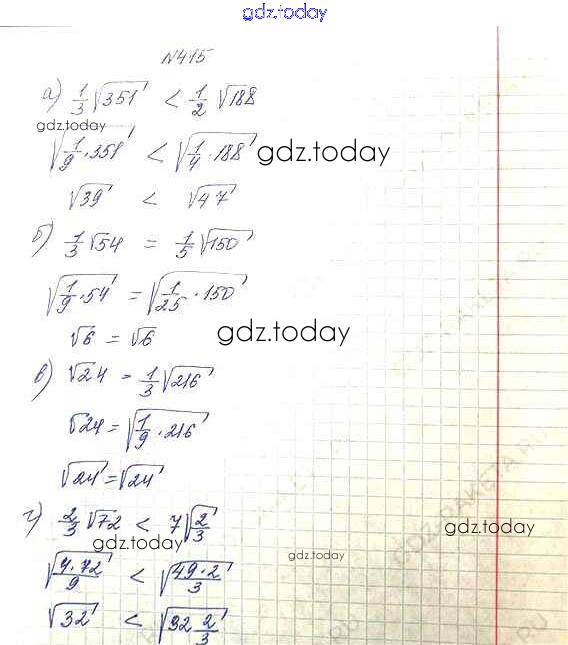 gdz.today
N415
а) 1/3 √351 < 1/2 √188
gdz.today
√(1/9 · 351) < √(1/4 · 188) gdz.today
√39 < √47
б) 1/3 √54 = 1/5 √150
√(1/9 · 54) = √(1/25 · 150)
√6 = √6 gdz.today
в) √24 = 1/3 √216
√24 = √(1/9 · 216)
√24 = √24
г) 2/3 √72 < 7 √(2/3) gdz.today
gdz.today gdz.today
√(4·72/9) < √(49·2/3)
√32 < √(32 2/3)